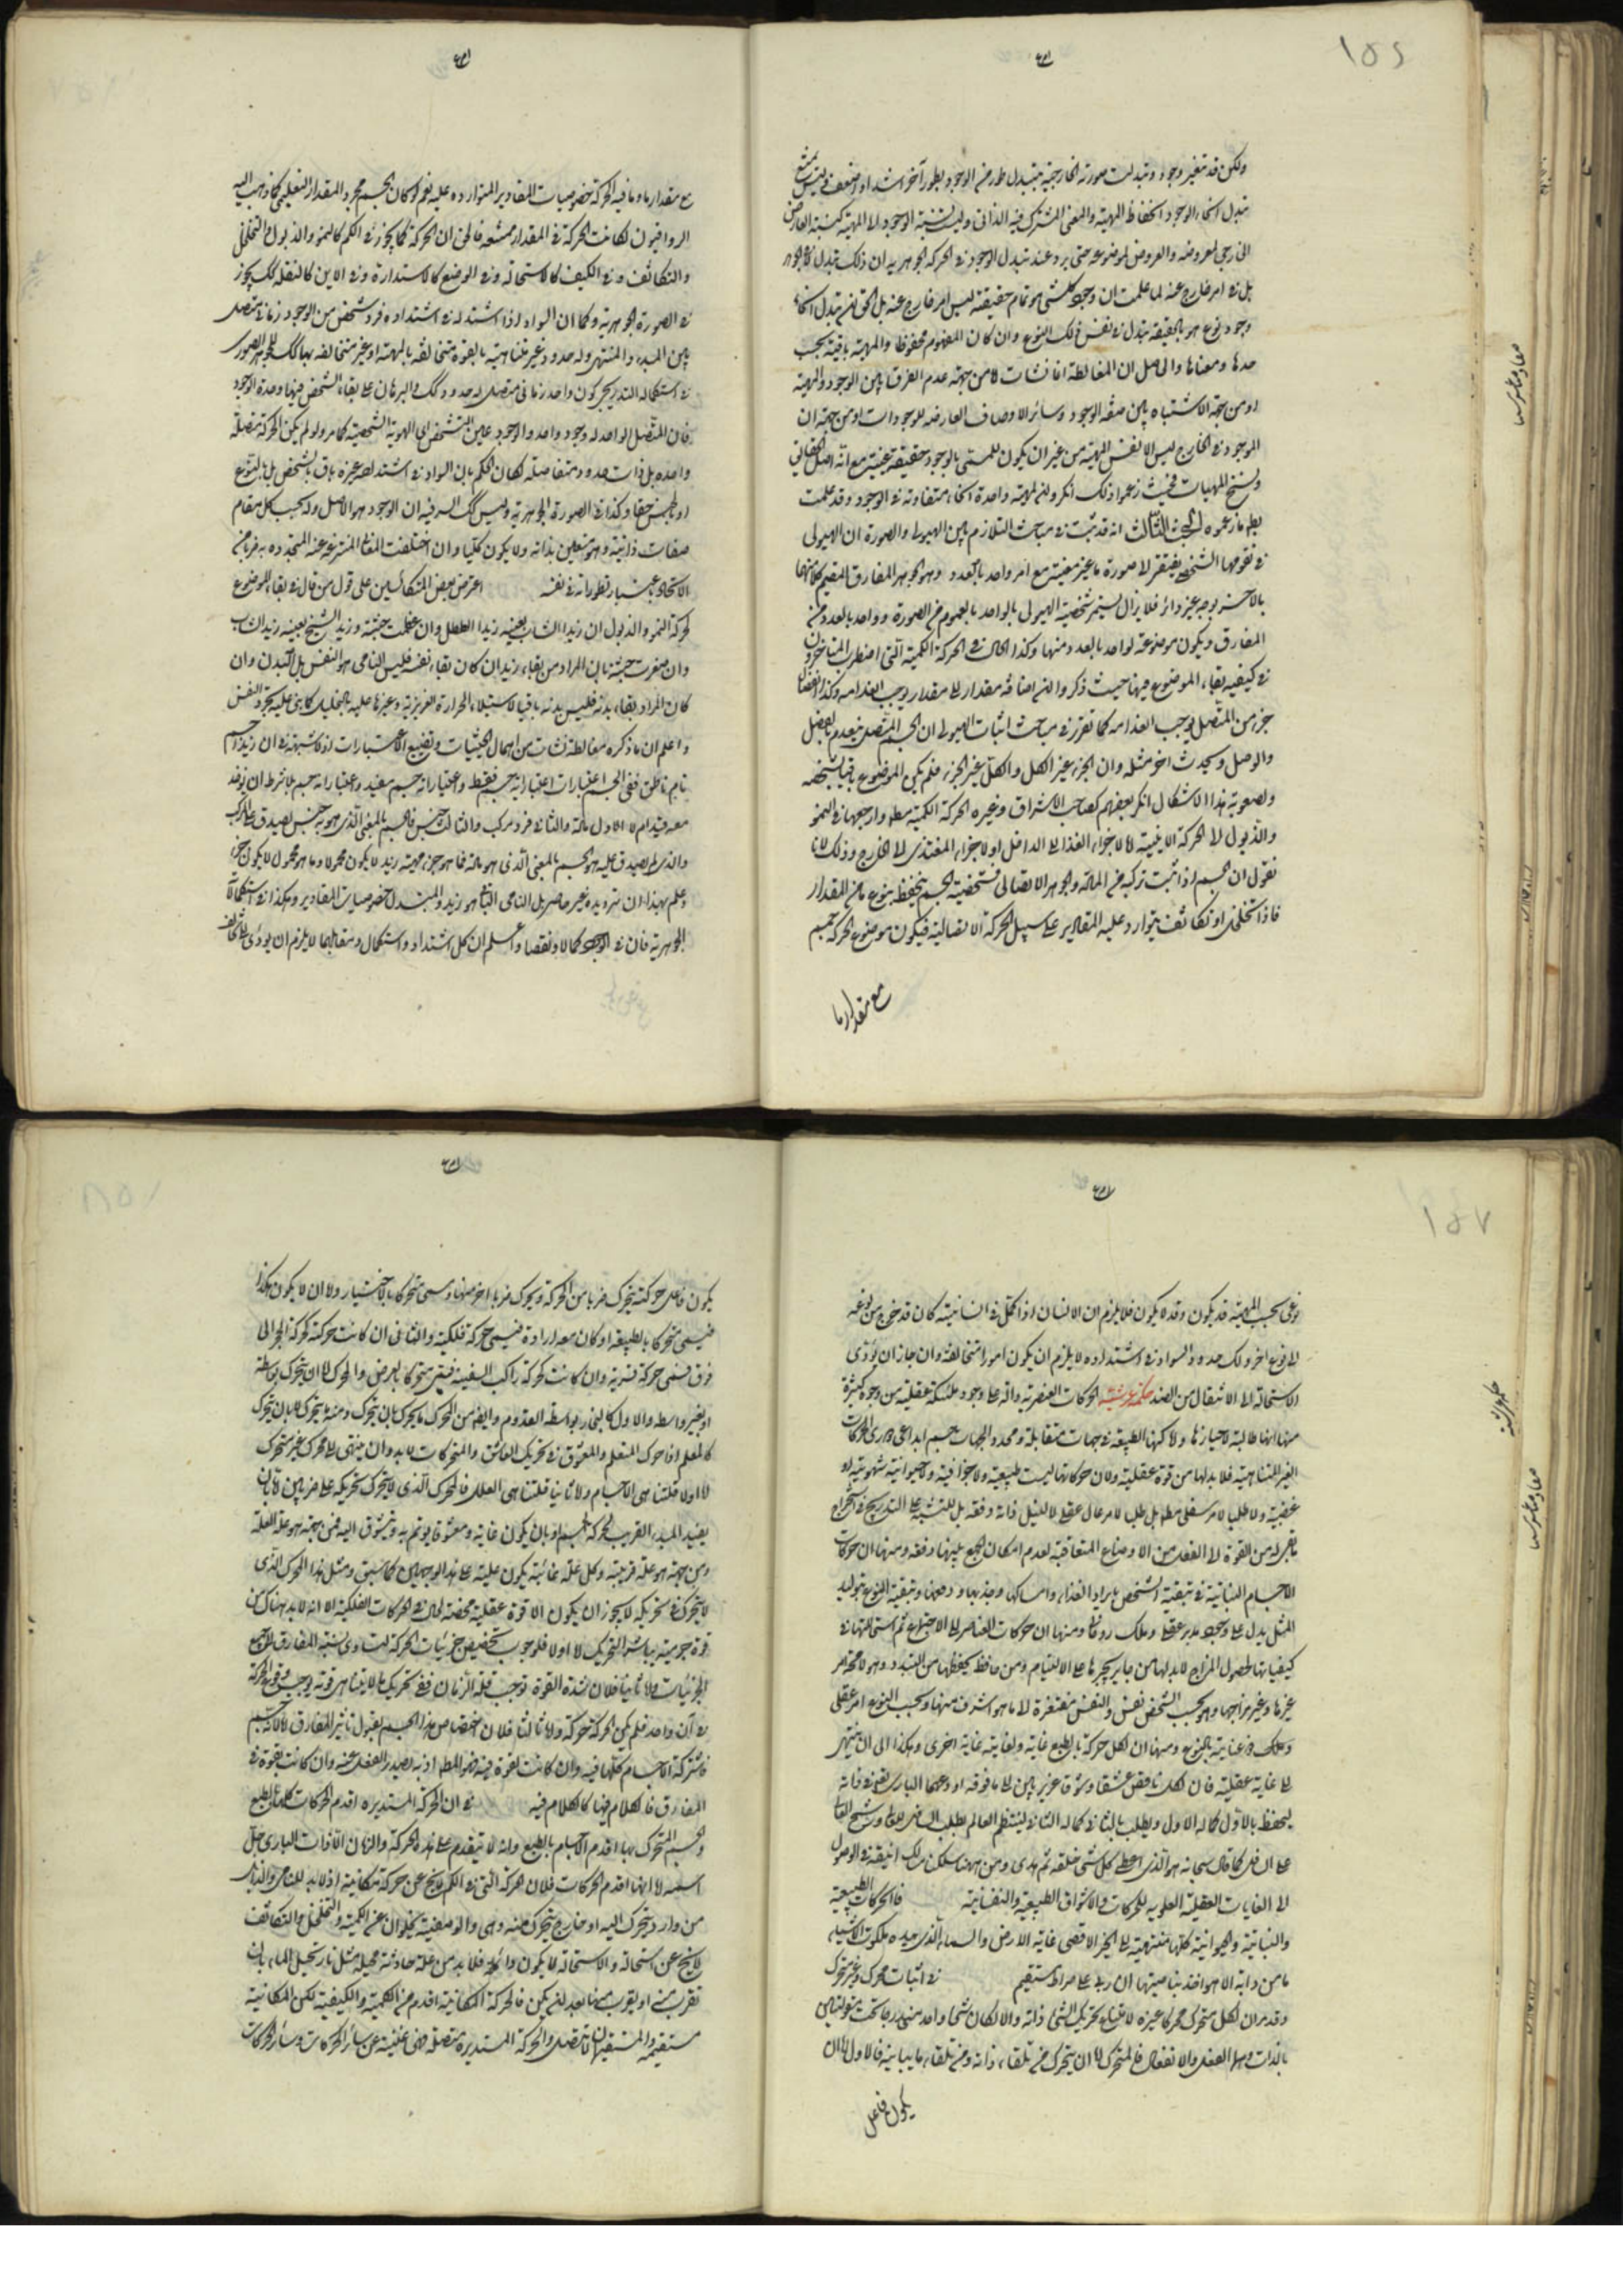 ولكن قد تغير وجوده وتبدلت صورته الخارجية بتبدل طور من الوجود بطور آخر اشد او اضعف وليس يمتنع
تبدل انحاء الوجود انحفاظ المهية والمعنى المشترك فيه الذاتى وليست نسبة الوجود الى المهية كنسبة العارض
الخارجى لمعروضه والعرض لموضوعه حتى يرد عند تبدل الوجود فى الحركة الجوهرية ان ذلك تبدل لا فى الجوهر
بل فى امر خارج عنه لما علمت ان وجود كل شى هو تمام حقيقته ليس امر خارج عنه بل الحق ان تبدل انحاء
وجود نوع هو بالحقيقة تبدل فى نفس ذلك النوع وان كان المفهوم محفوظا والمهية باقية بحسب
حدها ومعناها والحاصل ان المغالطة انما نشات لا من جهة عدم الفرق بين الوجود والمهية
او من جهة الاشتباه بين صفة الوجود وسائر الاوصاف العارضة للموجودات او من جهة ان
الموجود فى الخارج ليس الا نفس المهية من غير ان يكون للمسمى بالوجود حقيقة عينية مع انه اصل الحقائق
وسنخ المهيات فحيث زعموا ذلك انكروا ان لمهية واحدة انحاء متفاوتة فى الوجود وقد علمت
بطلان ما زعموه البحث الثالث انه قد ثبت فى مباحث التلازم بين الهيولى والصورة ان الهيولى
فى تقومها الشخصى يفتقر الى صورة ما غير معينة مع امر واحد بالعدد وهو الجوهر المفارق المقيم كلا منهما
بالاخر بوجه غير دائر فلا يزال يستمر شخصية الهيولى بالواحد بالعموم من الصورة وواحد بالعدد من
المفارق ويكون موضوعة لواحد بالعدد منهما وكذا الحال فى الحركة الكمية التى اضطرب المتاخرون
فى كيفية بقاء الموضوع فيها حيث ذكروا ان اضافة مقدار الى مقدار يوجب انعدامه وكذا انفصال
جزء من المتصل يوجب انعدامه كما تقرر فى مباحث اثبات الهيولى ان الجسم المتصل ينعدم بالفصل
والوصل ويحدث اخر مثله وان الجزء غير الكل والكل غير الجزء فلم يكن الموضوع باقيا بشخصه
ولصعوبة هذا الاشكال انكر بعضهم كصاحب الاشراق وغيره الحركة الكمية مطلقا وارجعها فى النمو
والذبول الى الحركة الاينية اما لاجزاء الغذاء الى الداخل او لاجزاء المغتذى الى الخارج وذلك لانا
نقول ان الجسم اذا ثبت تركبه من المادة والجوهر الاتصالى فشخصية الجسم ينحفظ بنوع ما من المقدار
فاذا تخلخل او تكاثف يتوارد عليه المقادير على سبيل الحركة الاتصالية فيكون موضوع الحركة جسم
مع مقدار ما
مع مقدار ما وما فيه الحركة خصوصيات المقادير المتواردة عليه نعم لو كان الجسم مجرد المقدار التعليمى كما ذهب اليه
الرواقيون لكانت الحركة فى المقدار ممتنعة فالحق ان الحركة كما يجوز فى الكم كالنمو والذبول والتخلخل
والتكاثف وفى الكيف كالاستحالة وفى الوضع كالاستدارة وفى الاين كالنقلة كك يجوز
فى الصورة الجوهرية وكما ان السواد اذا اشتد له فى اشتداده فرد شخصى من الوجود زمانى متصل
بين المبدء والمنتهى وله حدود غير متناهية بالقوة متخالفة بالمهية او غير متخالفة بها كك للجوهر الصورى
فى استكماله التدريجى كون واحد زمانى متصل له حدود كك والبرهان على بقاء الشخص فيهما وحدة الوجود
فان المتصل الواحد له وجود واحد والوجود عين التشخص اى الهوية الشخصية كما مر ولو لم يكن الحركة متصلة
واحدة بل ذات حدود متفاصلة لكان الحكم بان السواد فى اشتداده غير باق بالشخص بل بالنوع
او بالجنس حقا وكذا فى الصورة الجوهرية وليس كك السر فيه ان الوجود هو الاصل وله بحسب كل مقام
صفات ذاتية وهو متعين بذاته ولا يكون كليا وان اختلفت المعانى المنتزعة عنه المتحدة به ضربا من
الاتحاد باعتبار تطوراته فى نفسه اعترض بعض المتكلمين على قول من قال فى بقاء الموضوع
لحركة النمو والذبول ان زيدا الشاب بعينه زيدا الطفل وان عظمت جثته وزيد الشيخ بعينه زيد الشاب
وان صغرت جثته بان المراد من بقاء زيد ان كان بقاء نفسه فليس النامى هو النفس بل البدن وان
كان المراد بقاء بدنه فليس بدنه باقيا لاستيلاء الحرارة الغريزية وغيرها عليه بالتحليل كما بنى عليه تجرد النفس
واعلم ان ما ذكره مغالطة نشات من اهمال الحيثيات وتضييع الاعتبارات اذ لا شبهة فى ان زيدا جسم
نام ناطق ففى الجسم اعتبارات اعتبار انه جسم فقط واعتبار انه جسم مقيد واعتبار انه جسم بلا شرط ان يوخذ
معه قيد ام لا الاول مادة والثانى فرد مركب والثالث جنس فالجسم بالمعنى الذى هو به جنس يصدق على المركب
والذى لم يصدق عليه هو الجسم بالمعنى الذى هو مادة فما هو جزء مهية زيد لا يكون محمولا وما هو محمول لا يكون جزء
وعلم بهذا ان ترديده غير حاصر بل النامى الباقى هو زيد والمتبدل خصوصيات المقادير وهكذا فى استكمالات
الجوهرية فان فى الوجود كمالا ونقصا واعلم ان كل اشتداد واستكمال ومقابلهما لا يلزم ان يودى الى تخالف
نوعى بحسب المهية قد يكون وقد لا يكون فلا يلزم ان الانسان اذا كمل فى انسانيته كان قد خرج من نوعه
الى نوع اخر ولك حدود السواد فى اشتداده لا يلزم ان يكون امورا متخالفة وان جاز ان يؤدى
الاستحالة الى الانتقال من الضد حكمة عرشية الحركات العنصرية دالة على وجود ملئكة عقلية من وجوه كثيرة
منها انها طالبة لاحيازها ولاماكنها الطبيعة فى جهات متقابلة ومحدد الجهات جسم ابداعى دورى الحركات
الغير المتناهية فلا بد لها من قوة عقلية ولان حركاتها ليست طبيعية ولا جزافية ولا حيوانية شهوية او
غضبية ولا طلبا لامر سفلى مطلقا بل طلب لامر عال عقلى لا لنيل ذاته دفعة بل للتشبه على التدريج فاستخراج
ما يمكن له من القوة الى الفعل من الاوضاع المتعاقبة لعدم امكان الجمع بينها دفعة ومنها ان حركات
الاجسام النباتية فى تبقية الشخص بايراد الغذاء وامساكها وجذبها ودفعها وتبقية النوع بتوليد
المثل يدل على وجود مدبر عقلى وملك روحانى ومنها ان حركات العناصر الى الاجتماع ثم استحالتها فى
كيفياتها لحصول المزاج لا بد لها من جابر يجبرها على الالتيام ومن حافظ يحفظها من التبدد وهو لا محة امر
غيرها وغير مزاجها وهو بحسب الشخص نفس والنفس مفتقرة الى ما هو اشرف منها وبحسب النوع امر عقلى
وملك ذو عناية بالنوع ومنها ان لكل حركة بالطبع غاية ولغايته غاية اخرى وهكذا الى ان ينتهى
الى غاية عقلية فان لكل ناقص عشقا وشوقا غريزيين الى ما فوقه اودعهما البارى تعالى فى ذاته
ليحفظ بالاول كماله الاول ويطلب بالثانى كماله الثانى لينتظم العالم بطلب السافل للعالى ورشح العالى
على السافل كما قال سبحانه هو الذى اعطى كل شى خلقه ثم هدى ومن ههنا سلكنا مسالك انيقة فى الوصول
الى الغايات العقلية العلوية للحركات والاشواق الطبيعية والنفسانية فالحركات الطبيعية
والنباتية والحيوانية كلها منتهية الى الخير الاقصى غاية الارض والسماء الذى بيده ملكوت الاشياء
ما من دابة الا هو اخذ بناصيتها ان ربى على صراط مستقيم فى اثبات محرك غير متحرك
وقد مر ان لكل متحرك محركا غيره لامتناع تحريك الشى ذاته والا لكان شى واحد مندرجا تحت مقولتين
بالذات وهما الفعل والانفعال فالمتحرك اما ان يتحرك من تلقاء ذاته ومن تلقاء ما يباينه فالاول اما ان
يكون فاعل
يكون فاعل حركته يتحرك ضربا من الحركة ويحرك ضربا اخر منها ويسمى متحركا بالاختيار ولا ان لا يكون هكذا
فيسمى متحركا بالطبيعة او كان معه ارادة فيسمى حركة فلكية والثانى ان كانت حركته كحركة الحجر الى
فوق فسمى حركة قسرية وان كانت كحركة راكب السفينة فيسمى متحركا بالعرض والمحرك اما ان يتحرك بواسطة
او بغير واسطة والاول كالنجار بواسطة القدوم وايضا من المحرك ما يحرك بان يتحرك ومنه ما يتحرك لا بان يتحرك
كالمعلم اذا حرك المتعلم والمعشوق فى تحريك العاشق والمتحركات لا بد وان ينتهى الى محرك غير متحرك
اما اولا فلتناهى الاجسام واما ثانيا فلتناهى العلل فالمحرك الذى لا يتحرك تحريكه على ضربين اما بان
يفيد المبدء القريب لحركة الجسم او بان يكون غاية ومعشوقا يوتم به ويتشوق اليه فمن جهة هو علة العلة
ومن جهة هو علة قريبة وكل علة غائية يكون علية على هذا الوجهين كما سبق ومثل هذا المحرك الذى
لا يتحرك فى تحريكه لا يجوز ان يكون الا قوة عقلية محضة كما فى الحركات الفلكية الا انه لا بد هناك من
قوة جرمية يباشر التحريك اما اولا فلوجوب تخصيص جزئيات الحركة لتساوى نسبة المفارق الى جميع
الجزئيات واما ثانيا فلان شدة القوة توجب قلة الزمان ففى تحريك ما لا يتناهى قوته يوجب وقوع الحركة
فى آن واحد فلم يكن الحركة حركة واما ثالثا فلان اختصاص هذا الجسم بقبول تاثير المفارق اما لانه جسم
فاشتركة الاجسام كلها فيه وان كانت لقوة فيه فهو المطلوب اذ به يصدر الفعل عنه وان كانت بقوة فى
المفارق فالكلام فيها كالكلام فيه فى ان الحركة المستديرة اقدم الحركات كلها بالطبع
والجسم المتحرك بها اقدم الاجسام بالطبع وانه لا يتقدم على هذه الحركة والزمان الا ذات البارى جل
اسمه اما انها اقدم الحركات فلان الحركة التى فى الكم لا يخ عن حركة مكانية اذ لا بد للنامى والذابل
من وارد يتحرك اليه او خارج يتحرك منه وهى والوضعية يخلوان عن الكمية والتخلخل والتكاثف
لا يخ عن استحالة والاستحالة لا يكون دائمة فلا بد من علة حادثة محيلة مثل نار تحيل الماء بان
تقرب منه او يقرب منها بعد ان لم يكن فالحركة المكانية اقدم من الكمية والكيفية لكن المكانية
مستقيمة والمستقيمة لا تتصل والحركة المستديرة متصلة فهى غنية عن سائر الحركات وسائر الحركات